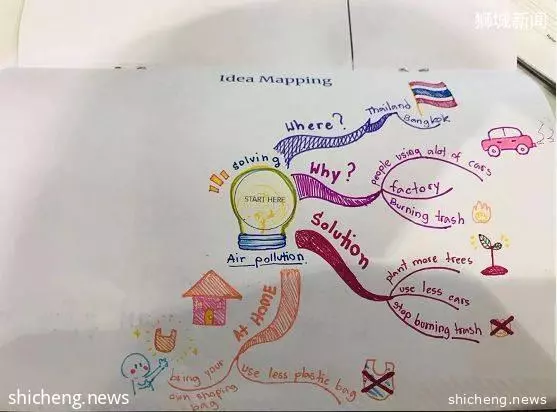 狮城新闻
Idea Mapping
Where?
Thailand
Bangkok
solving
START HERE
Air pollution
Why?
people using alot of cars
factory
Burning trash
Solution
plant more trees
use less cars
stop burning trash
At HOME
bring your
own shoping
bag
use less plastic bag
shicheng.news
shicheng.news